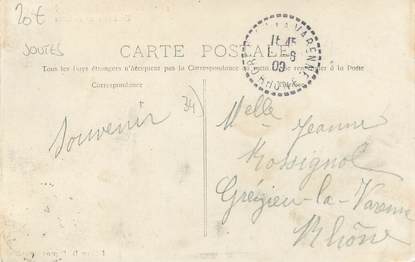 20€
JOUTES
CARTE POSTALE
Tous les Pays étrangers n'acceptent pas la Correspondance au recto, se renseigner à la Poste
Correspondance
34)
Souvenir
LA VARENNE
RHONE
09
Melle Jeanne
Rossignol
Grézieu-la-Varenne
Rhône